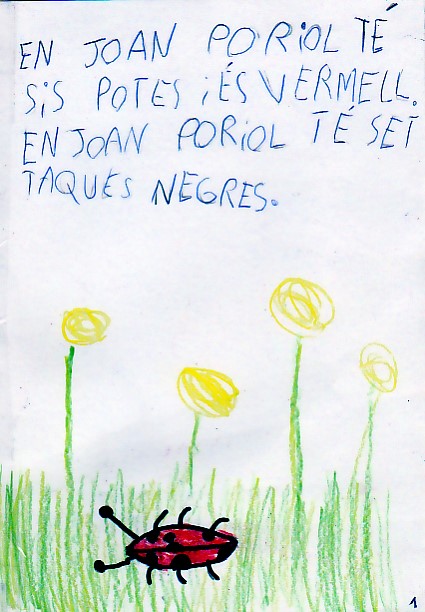 EN JOAN PORIOL TÉ
SIS POTES I ÉS VERMELL.
EN JOAN PORIOL TÉ SET
TAQUES NEGRES.
1